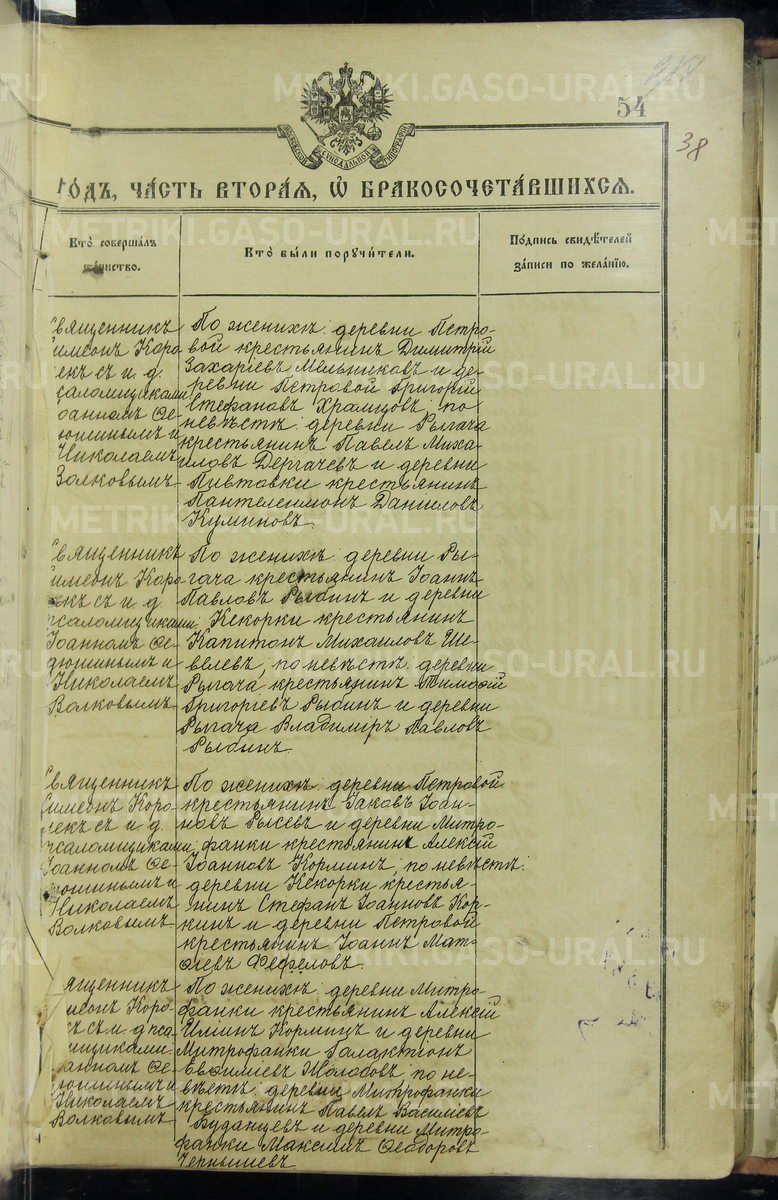 54
38
годъ, часть вторая, ѡ бракосочетавшихся.
Кто совершалъ
таинство.
Кто были поручители.
Подпись свидѣтелей
записи по желанію.
Священникъ
Симеонъ Коро
екъ съ и. д.
псаломщиками
Іоанномъ Ѳе
дюшинымъ и
Николаемъ
Волковымъ
По женихѣ: деревни Петро-
вой крестьянинъ Димитрій
Захаріевъ Мельниковъ и де-
ревни Петровой Григорій
Стефановъ Храмцовъ; по
невѣстѣ: деревни Рыгача
крестьянинъ Павелъ Миха-
иловъ Дергачевъ и деревни
Пивтовки крестьянинъ
Пантелеимонъ Даниловъ
Куминовъ.
Священникъ
Симеонъ Коро
екъ съ и. д.
псаломщиками
Іоанномъ Ѳе-
дюшинымъ и
Николаемъ
Волковымъ
По женихѣ: деревни Ры-
гача крестьянинъ Іоаннъ
Павловъ Рыбинъ и деревни
Кекорки крестьянинъ
Капитонъ Михаиловъ Ше-
велевъ; по невѣстѣ: деревни
Рыгача крестьянинъ Тимоѳей
Григоріевъ Рыбинъ и деревни
Рыгача Владиміръ Павловъ
Рыбинъ.
Священникъ
Симеонъ Коро-
лекъ съ и. д.
псаломщиками
Іоанномъ Ѳе-
дюшинымъ и
Николаемъ
Волковымъ
По женихѣ: деревни Петровой
крестьянинъ Іаковъ Іоан-
новъ Рысевъ и деревни Митро-
фанки крестьянинъ Алексій
Іоанновъ Корминъ; по невѣстѣ:
деревни Кекорки крестья-
нинъ Стефанъ Іоанновъ Кор-
кинъ и деревни Петровой
крестьянинъ Іоаннъ Мат-
ѳіевъ Фефеловъ.
ященникъ
меонъ Коро-
екъ съ и. д. пса
мщиками
анномъ Ѳе-
дюшинымъ и
Николаемъ
Волковымъ
По женихѣ: деревни Митро-
фанки крестьянинъ Алексій
Илиинъ Корминъ и деревни
Митрофанки Галактіонъ
Евѳиміевъ Жолобовъ; по не-
вѣстѣ: деревни Митрофанки
крестьянинъ Павелъ Василіевъ
Буданцевъ и деревни Митро-
фанки Максимъ Ѳеодоровъ
Чернышевъ.
METRIKI.GASO-URAL.RU